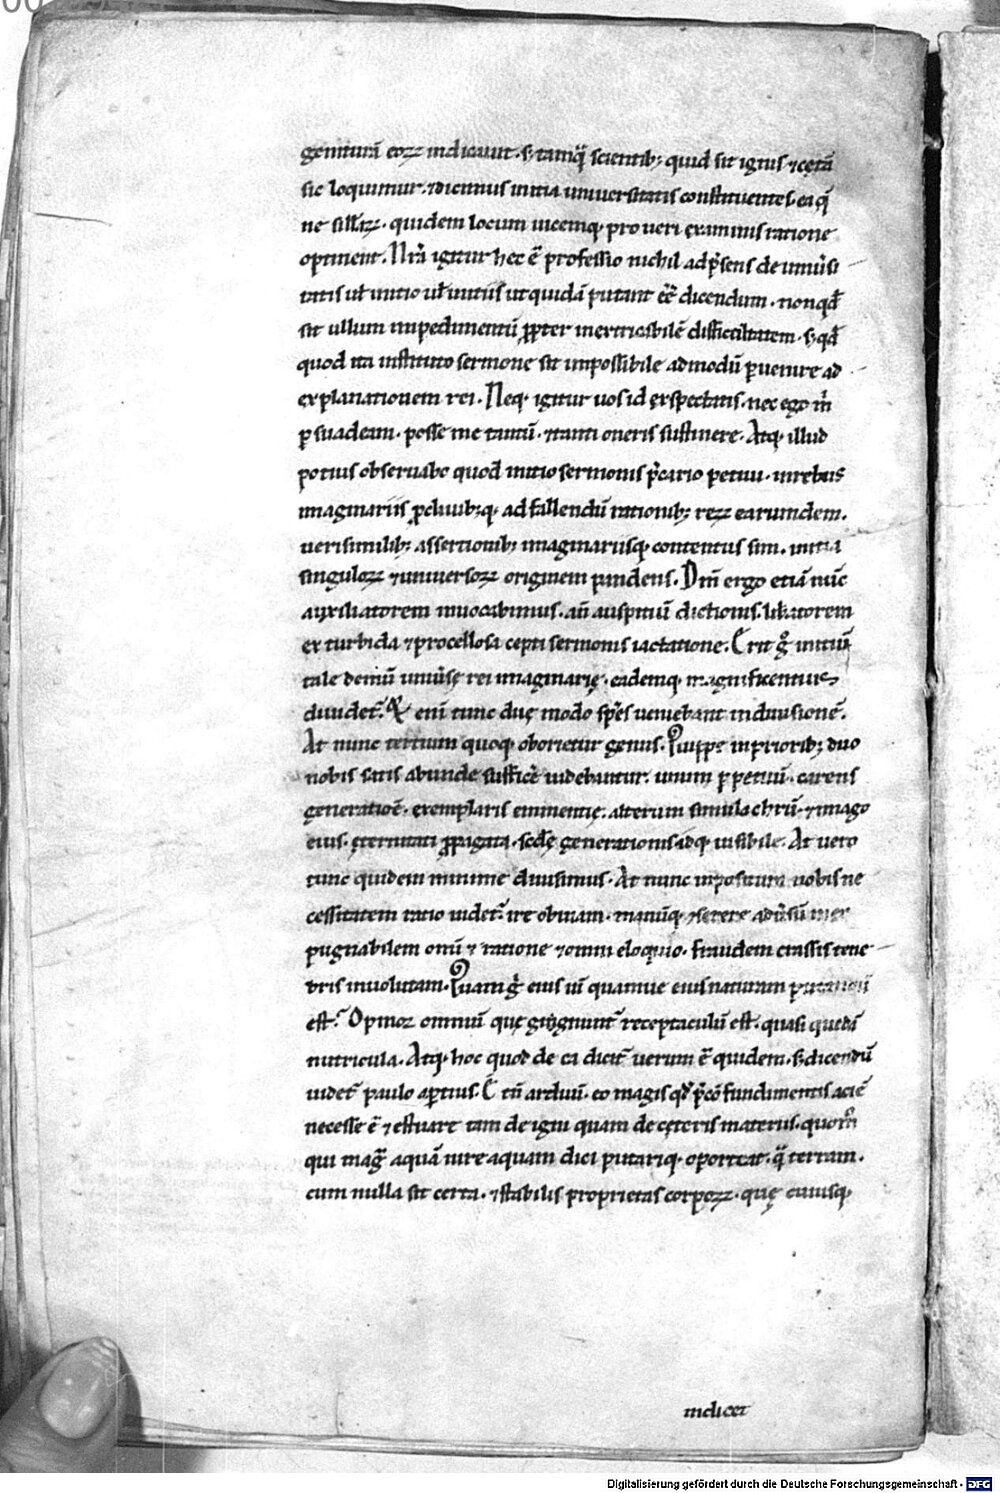 geniturā eoꝝ indicauit · s; tamq̃ scientib; quid sit ignis ⁊ cęta
sic loquimur · ⁊ dicimus initia uniuersitatis constituentes · ea q̄
ne sillaꝝ · quidem locum uicemq; pro ueri examinis ratione
optinent. Nr̄a igitur hec ē professio nichil ad p̄sens de uniũsi
tatis uł initio uł initiis ut quidā putant ēē dicendum · non qđ
sit ullum impedimentū ꝓpter inextricabilē difficultatem · s; qđ
quod ita instituto sermone sit impossibile admodū ꝑuenire ad
explanationem rei. Neq; igitur uos id exspectetis · nec ego m̄
ꝑsuadeam · posse me tantū · ⁊ tanti oneris sustinere. Atq; illud
potius obseruabo quod initio sermonis p̄cario petiui · in rebus
imaginariis ꝓcliuib;q; ad fallendū rationib; reꝝ earumdem ·
uerisimilib; assertionib; imaginariisq; contentus sim · initia
singuloꝝ ⁊ uniuersoꝝ originem pandens. Dm̄ ergo etiā nūc
auxiliatorem inuocabimus · añ auspitiū dictionis · liberatorem
ex turbida ⁊ procellosa cepti sermonis iactatione. Erit g̊ initiū
tale demū uniũsę rei imaginarię · eademq; magnificentius
diuidet̃. enī tunc duę modo sp̄es ueniebant in diuisionē.
At nunc tertium quoq; oborietur genus. Quippe in priorib; duo
nobis satis abunde sufficẽ uidebantur · unum ꝑpetuū · carens
generatioē · exemplaris eminentię · alterum simulachrū ⁊ imago
eius · ęternitati ꝓpagata · scdę generationis idq; uisibile. At uero
tunc quidem minime diuisimus · At nunc inpositura nobis ne
cessitatem ratio uidet̃ ire obuiam · manūq; ⁊ serere adũsū inex
pugnabilem omī ⁊ ratione ⁊ omni eloquio · fraudem crassis tene
bris inuolutam. Quam g̊ eius uī quamue eius naturam putandū
est. Opinor omniū quę gignunt̃ receptaculū est · quasi quedā
nutricula. Atq; hoc quod de ea dicit̃ uerum ē quidem · s; dicendū
uidet̃ paulo aꝑtius. Ē tñ arduū · eo magis qđ p̄cōfundi mentis aciē
necesse ē ⁊ estuare tam de igni quam de cęteris materiis ·
qui mag̃ aquā iure aquam dici putariq; oporteat · q̃ terram ·
cum nulla sit certa · ⁊ stabilis proprietas corpoꝝ · quę cuiusq;
indicet
Digitalisierung gefördert durch die Deutsche Forschungsgemeinschaft - DFG